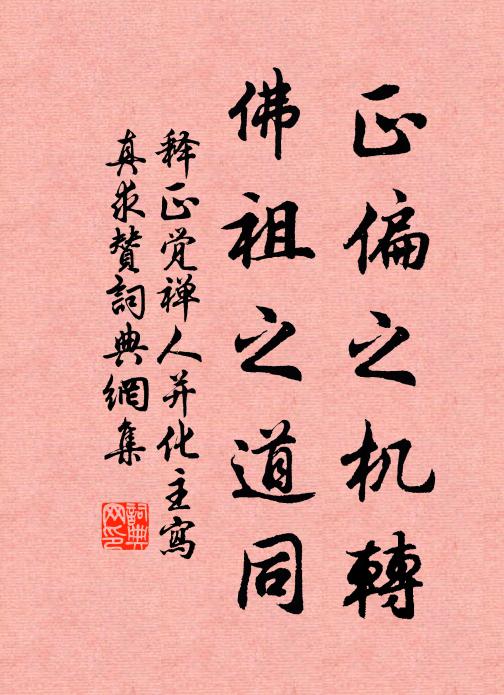 正偏之机轉
佛祖之道同
释正觉禅人并化主寫
真求赞詞典網集
詞典
网印